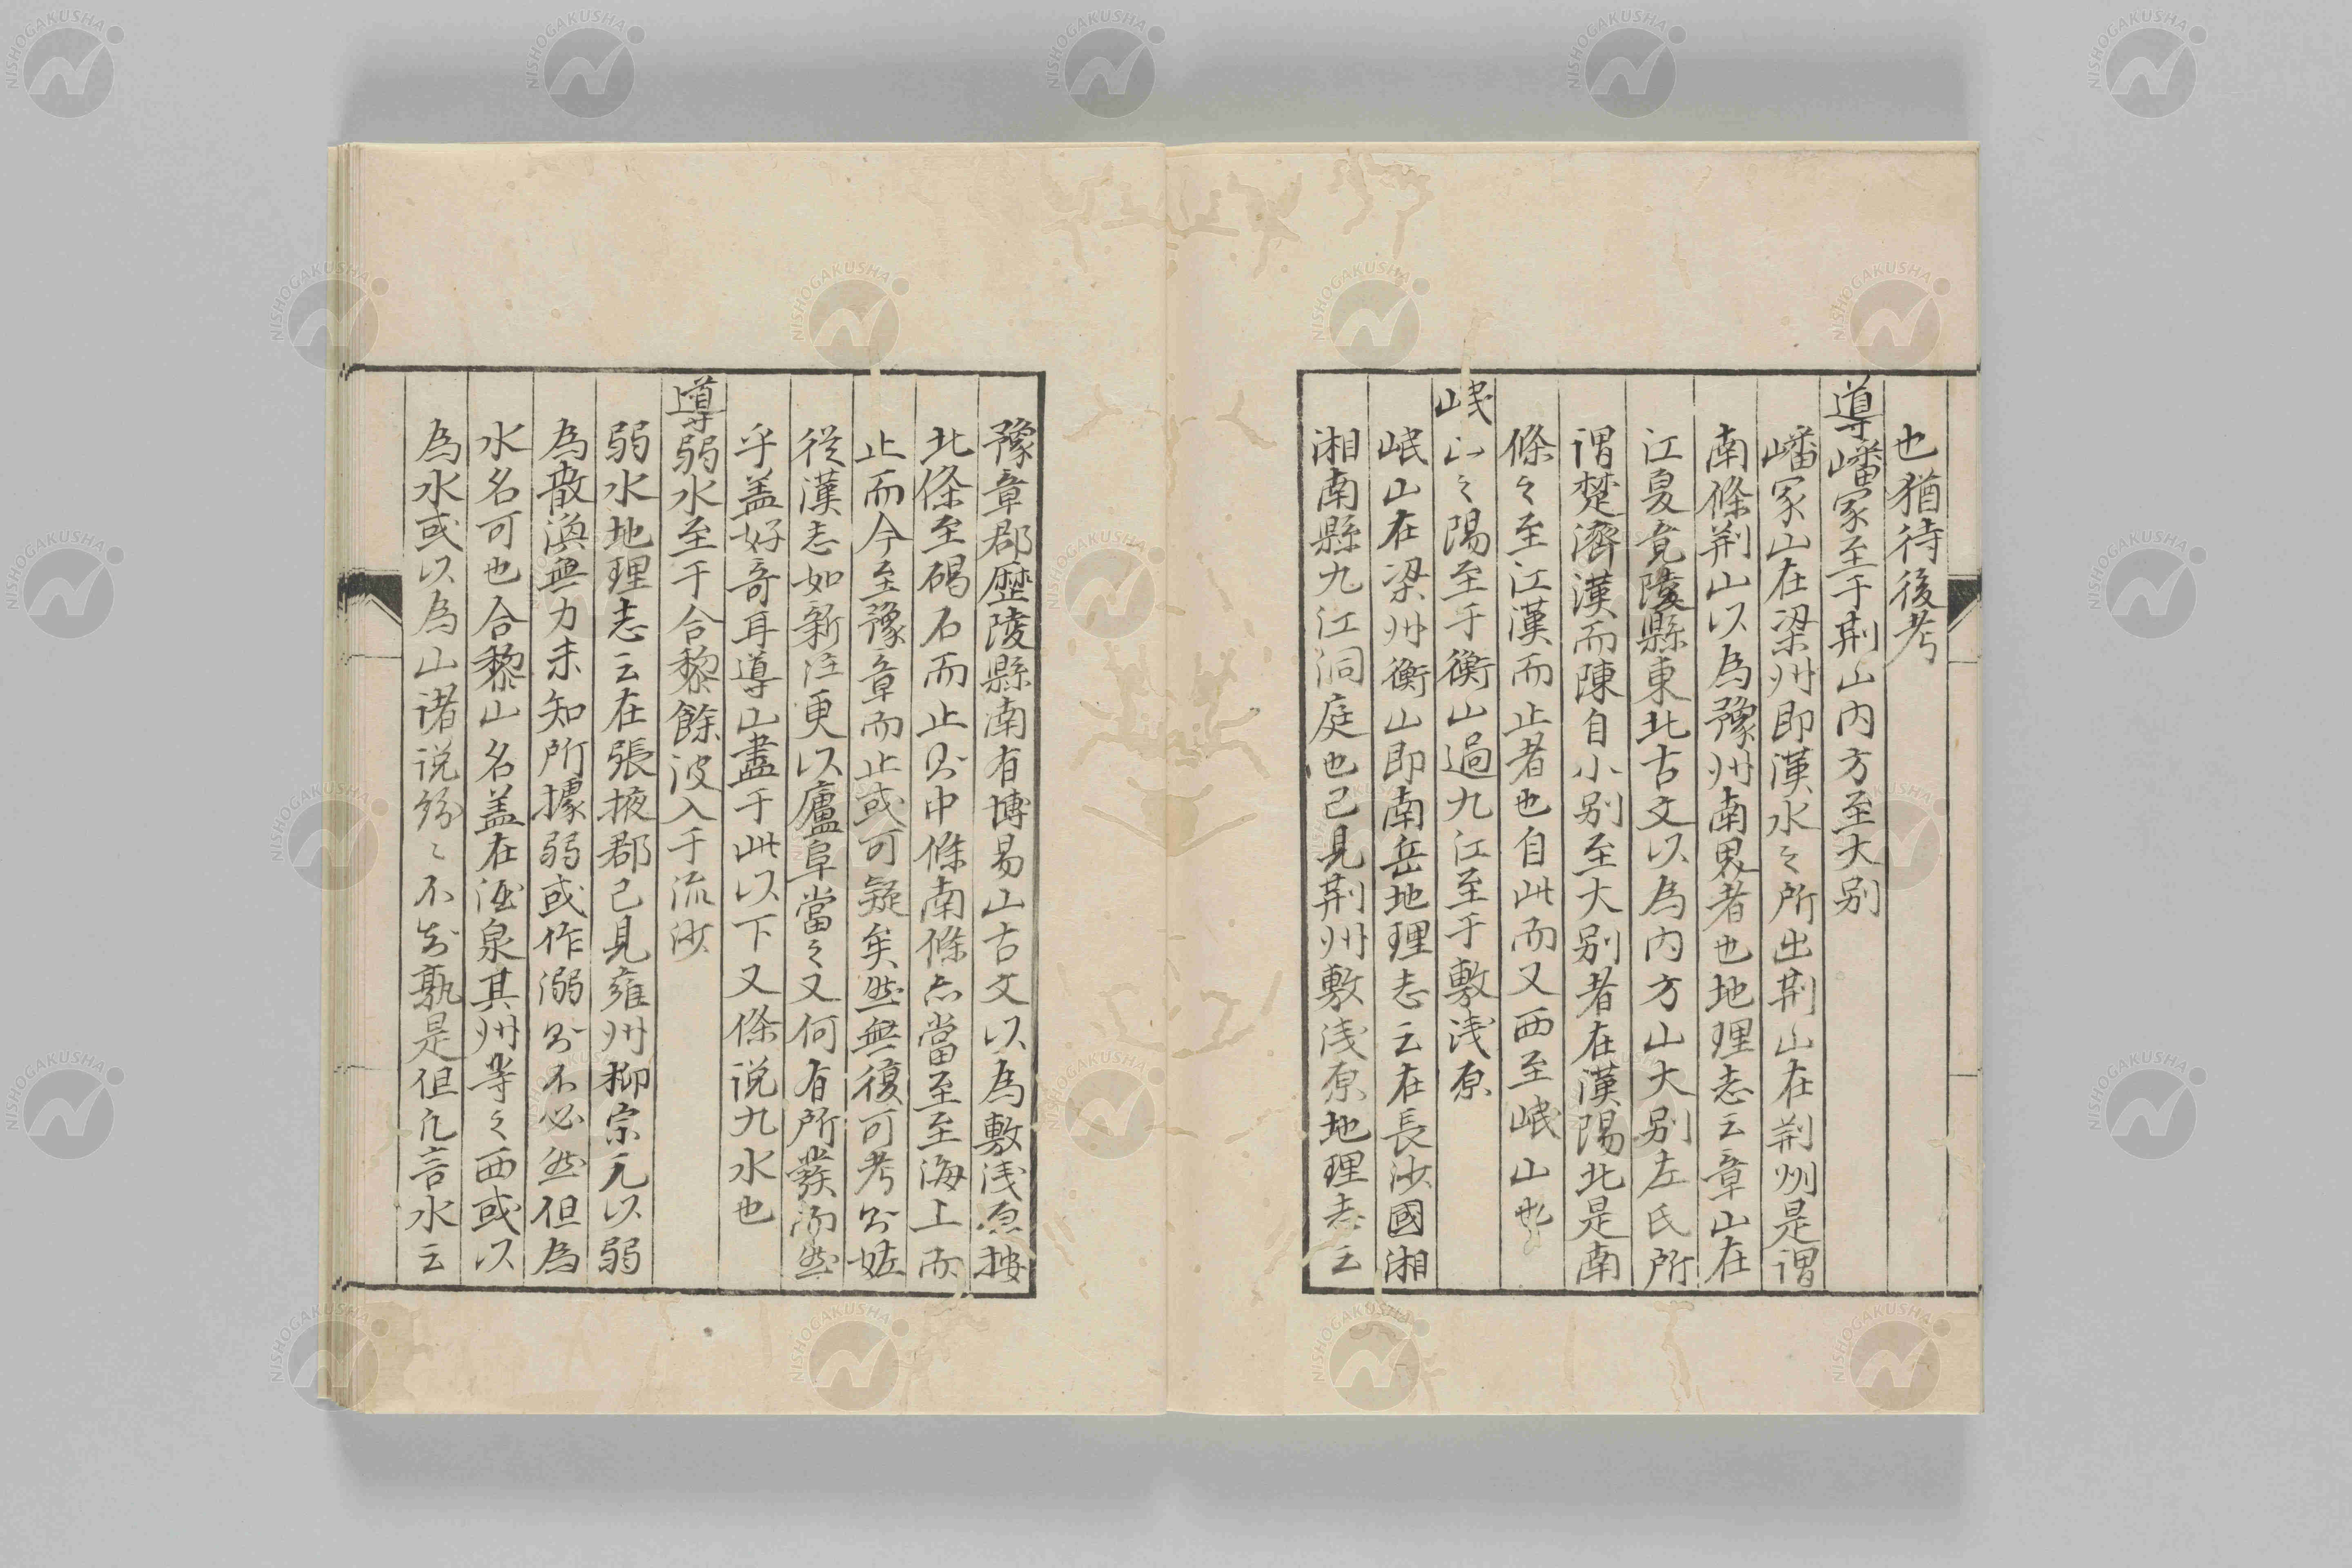 也猶待後考
導嶓冢至于荆山内方至大别
嶓冢山在梁州即漢水之所出荆山在荆州是謂
南條荆山以為豫州南界者也地理志云章山在
江夏竟陵縣東北古文以為内方山大别左氏所
謂楚濟漢而陳自小别至大别者在漢陽北是南
條之至江漢而止者也自此而又西至岷山也
岷山之陽至于衡山過九江至于敷浅原
岷山在梁州衡山即南岳地理志云在長沙國湘
湘南縣九江洞庭也已見荆州敷浅原地理志云
豫章郡歴陵縣南有博昜山古文以為敷浅原按
北條至碣石而止則中條南條亦當至至海上而
止而今至豫章而止或可疑矣然無復可考則姑
従漢志如新注更以廬阜當之又何有所發而然
乎盖好奇耳導山盡于此以下又條説九水也
導弱水至于合黎餘波入于流沙
弱水地理志云在張掖郡已見雍州柳宗元以弱
為散渙無力未知所據弱或作溺則不必然但為
水名可也合黎山名盖在酒泉其州等之西或以
為水或以為山諸説紛々不知孰是但凡言水云